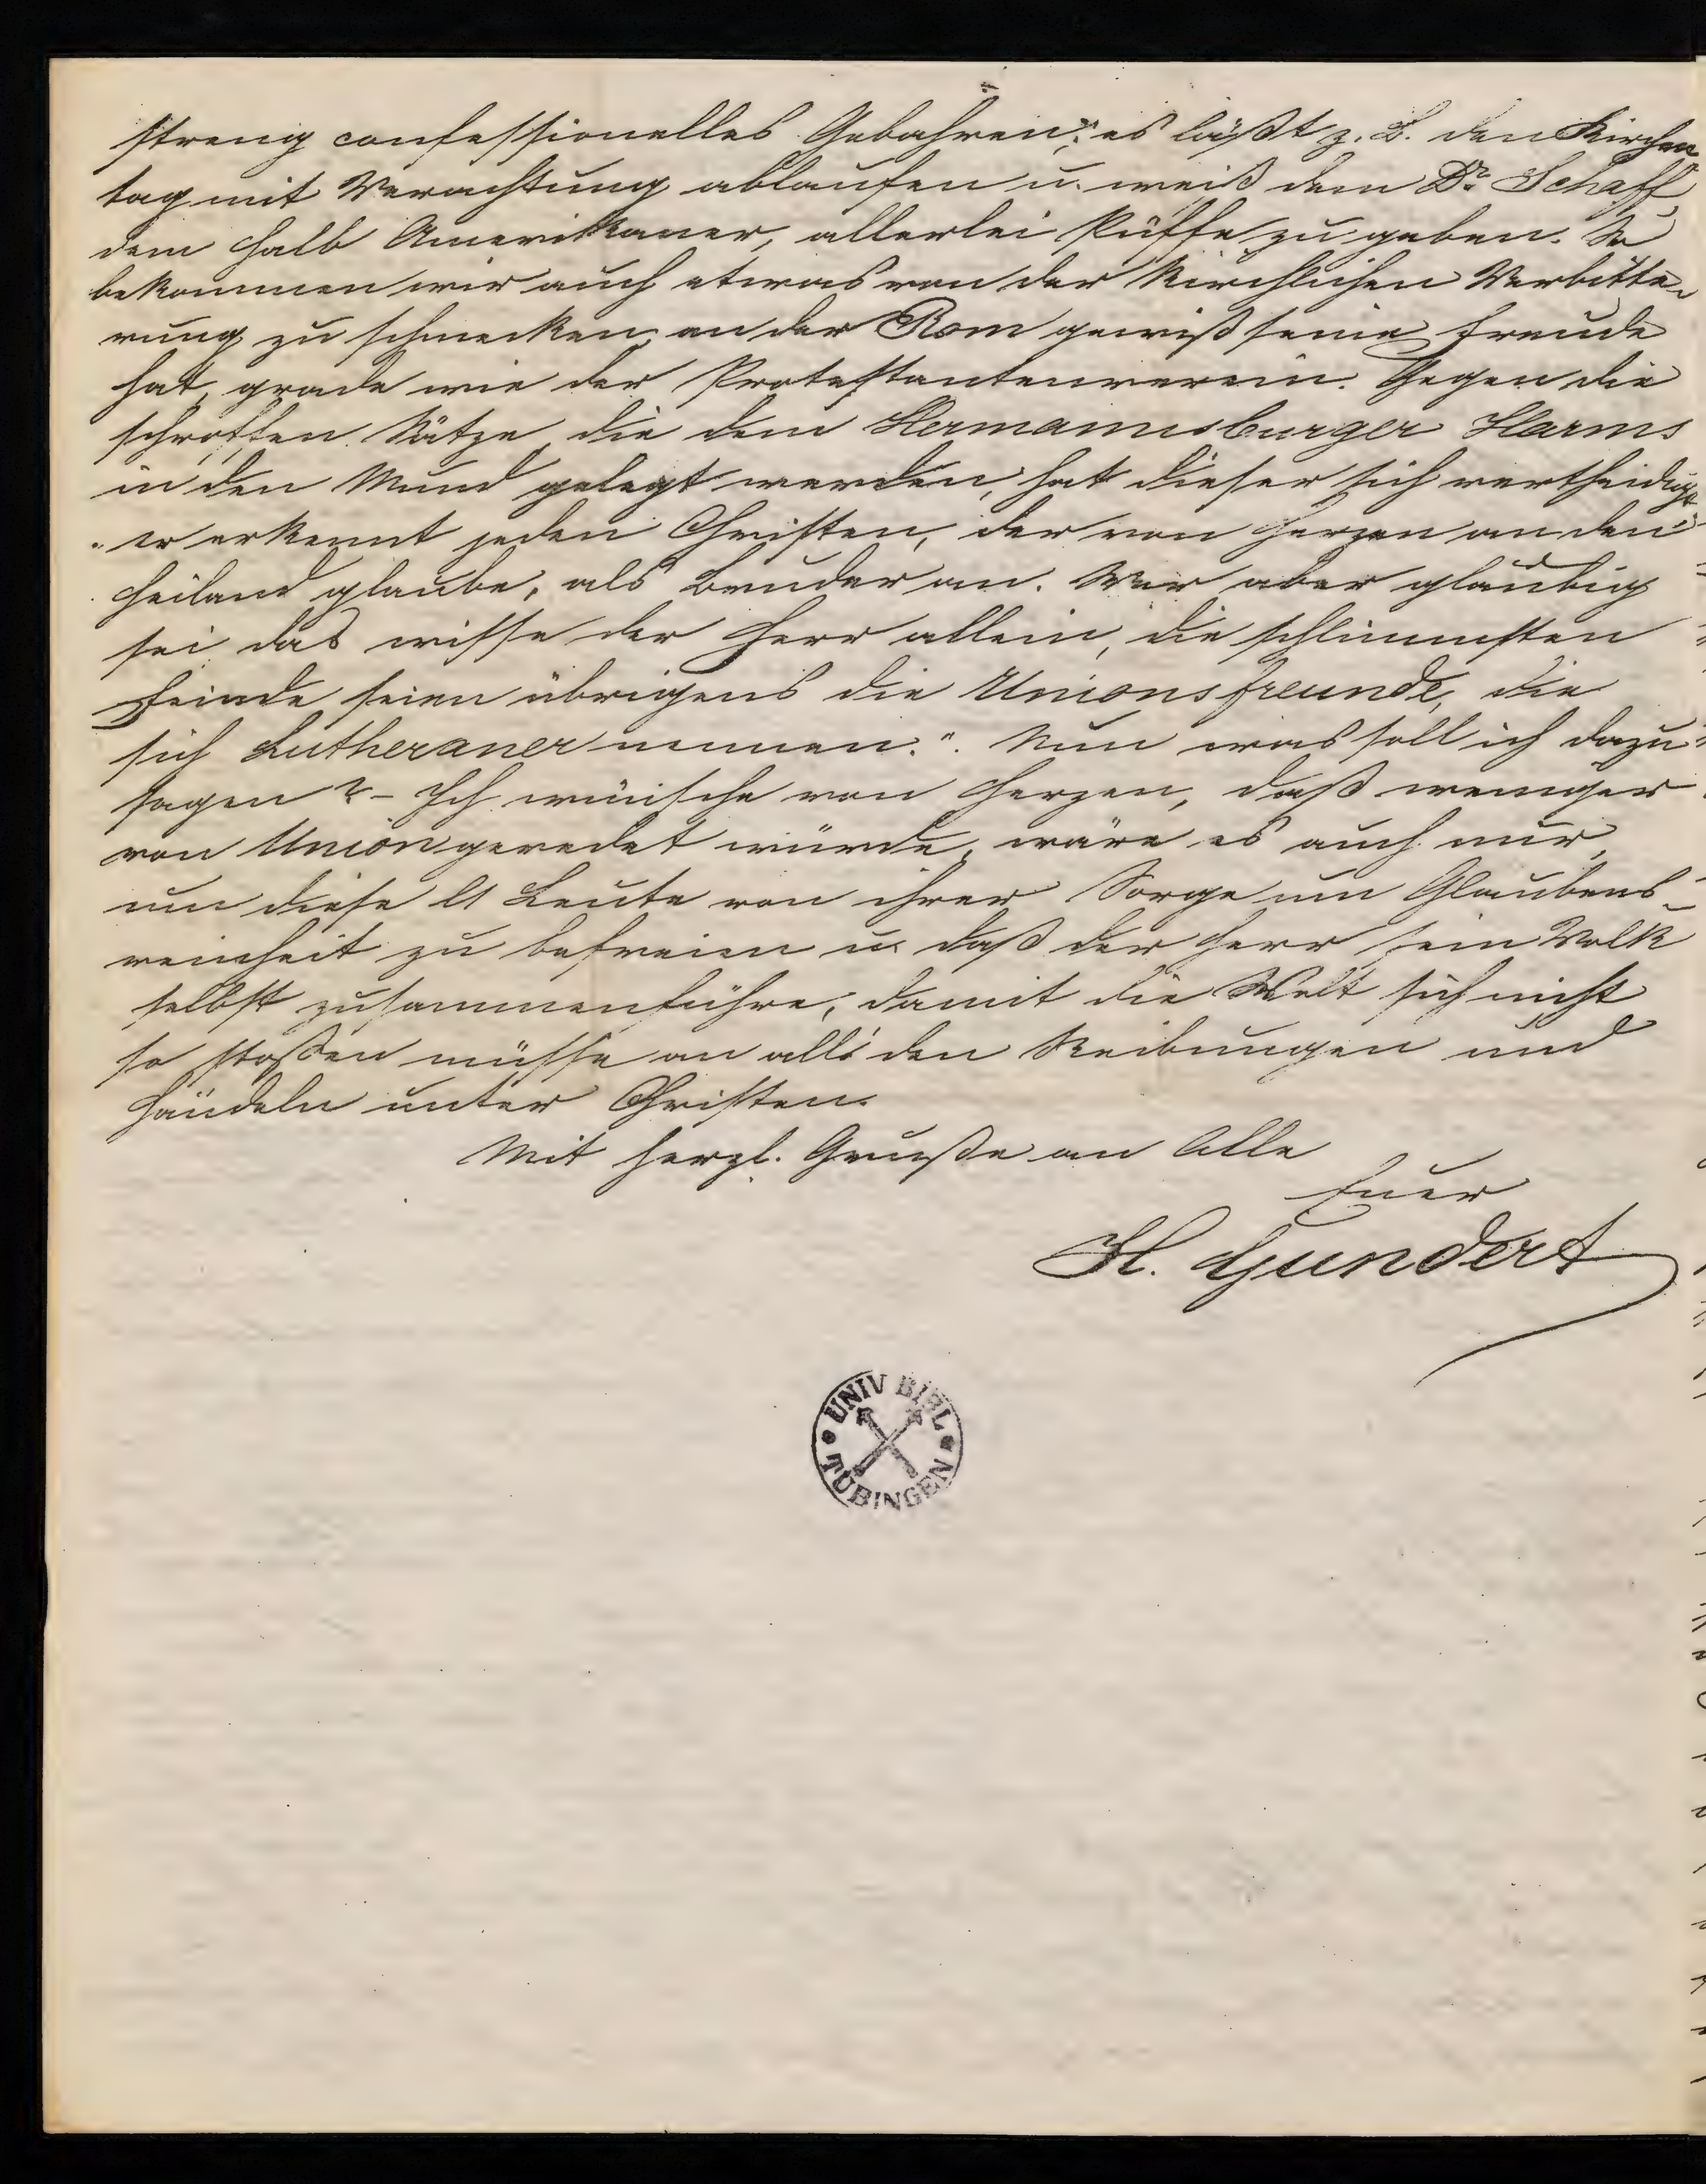 streng confessionelles Gebahren; es läßt z. B. den Kirchen
tag mit Verachtung ablaufen u. weiß dem Dr Schaff,
dem halb Amerikaner, allerlei Püffe zu geben. So
bekommen wir auch etwas von der kirchlichen Verbitte-
rung zu schmecken, an der Rom gewiß seine Freude
hat, grade wie der Protestantenverein. Gegen die
schroffen Sätze, die dem Hermannsburger Harms
in den Mund gelegt werden, hat dieser sich vertheidigt,
"er erkennt jeden Christen, der von Herzen an den
Heiland glaube, als Bruder an. Wer aber gläubig
sei das wisse der Herr allein, die schlimmsten
Feinde seien übrigens die Unionsfreunde, die
sich Lutheraner nennen.". Nun was soll ich dazu
sagen? - Ich wünsche von Herzen, daß weniger
von Union geredet würde, wäre es auch nur,
um diese ll Leute von ihrer Sorge um Glaubens-
reinheit zu befreien u. daß der Herr sein Volk
selbst zusammenführe, damit die Welt sich nicht
so stoßen müsse an all' den Reibungen und
Händeln unter Christen.
Mit herzl. Gruße an Alle
Euer
H. Gundert
UNIV BIBL
TÜBINGEN